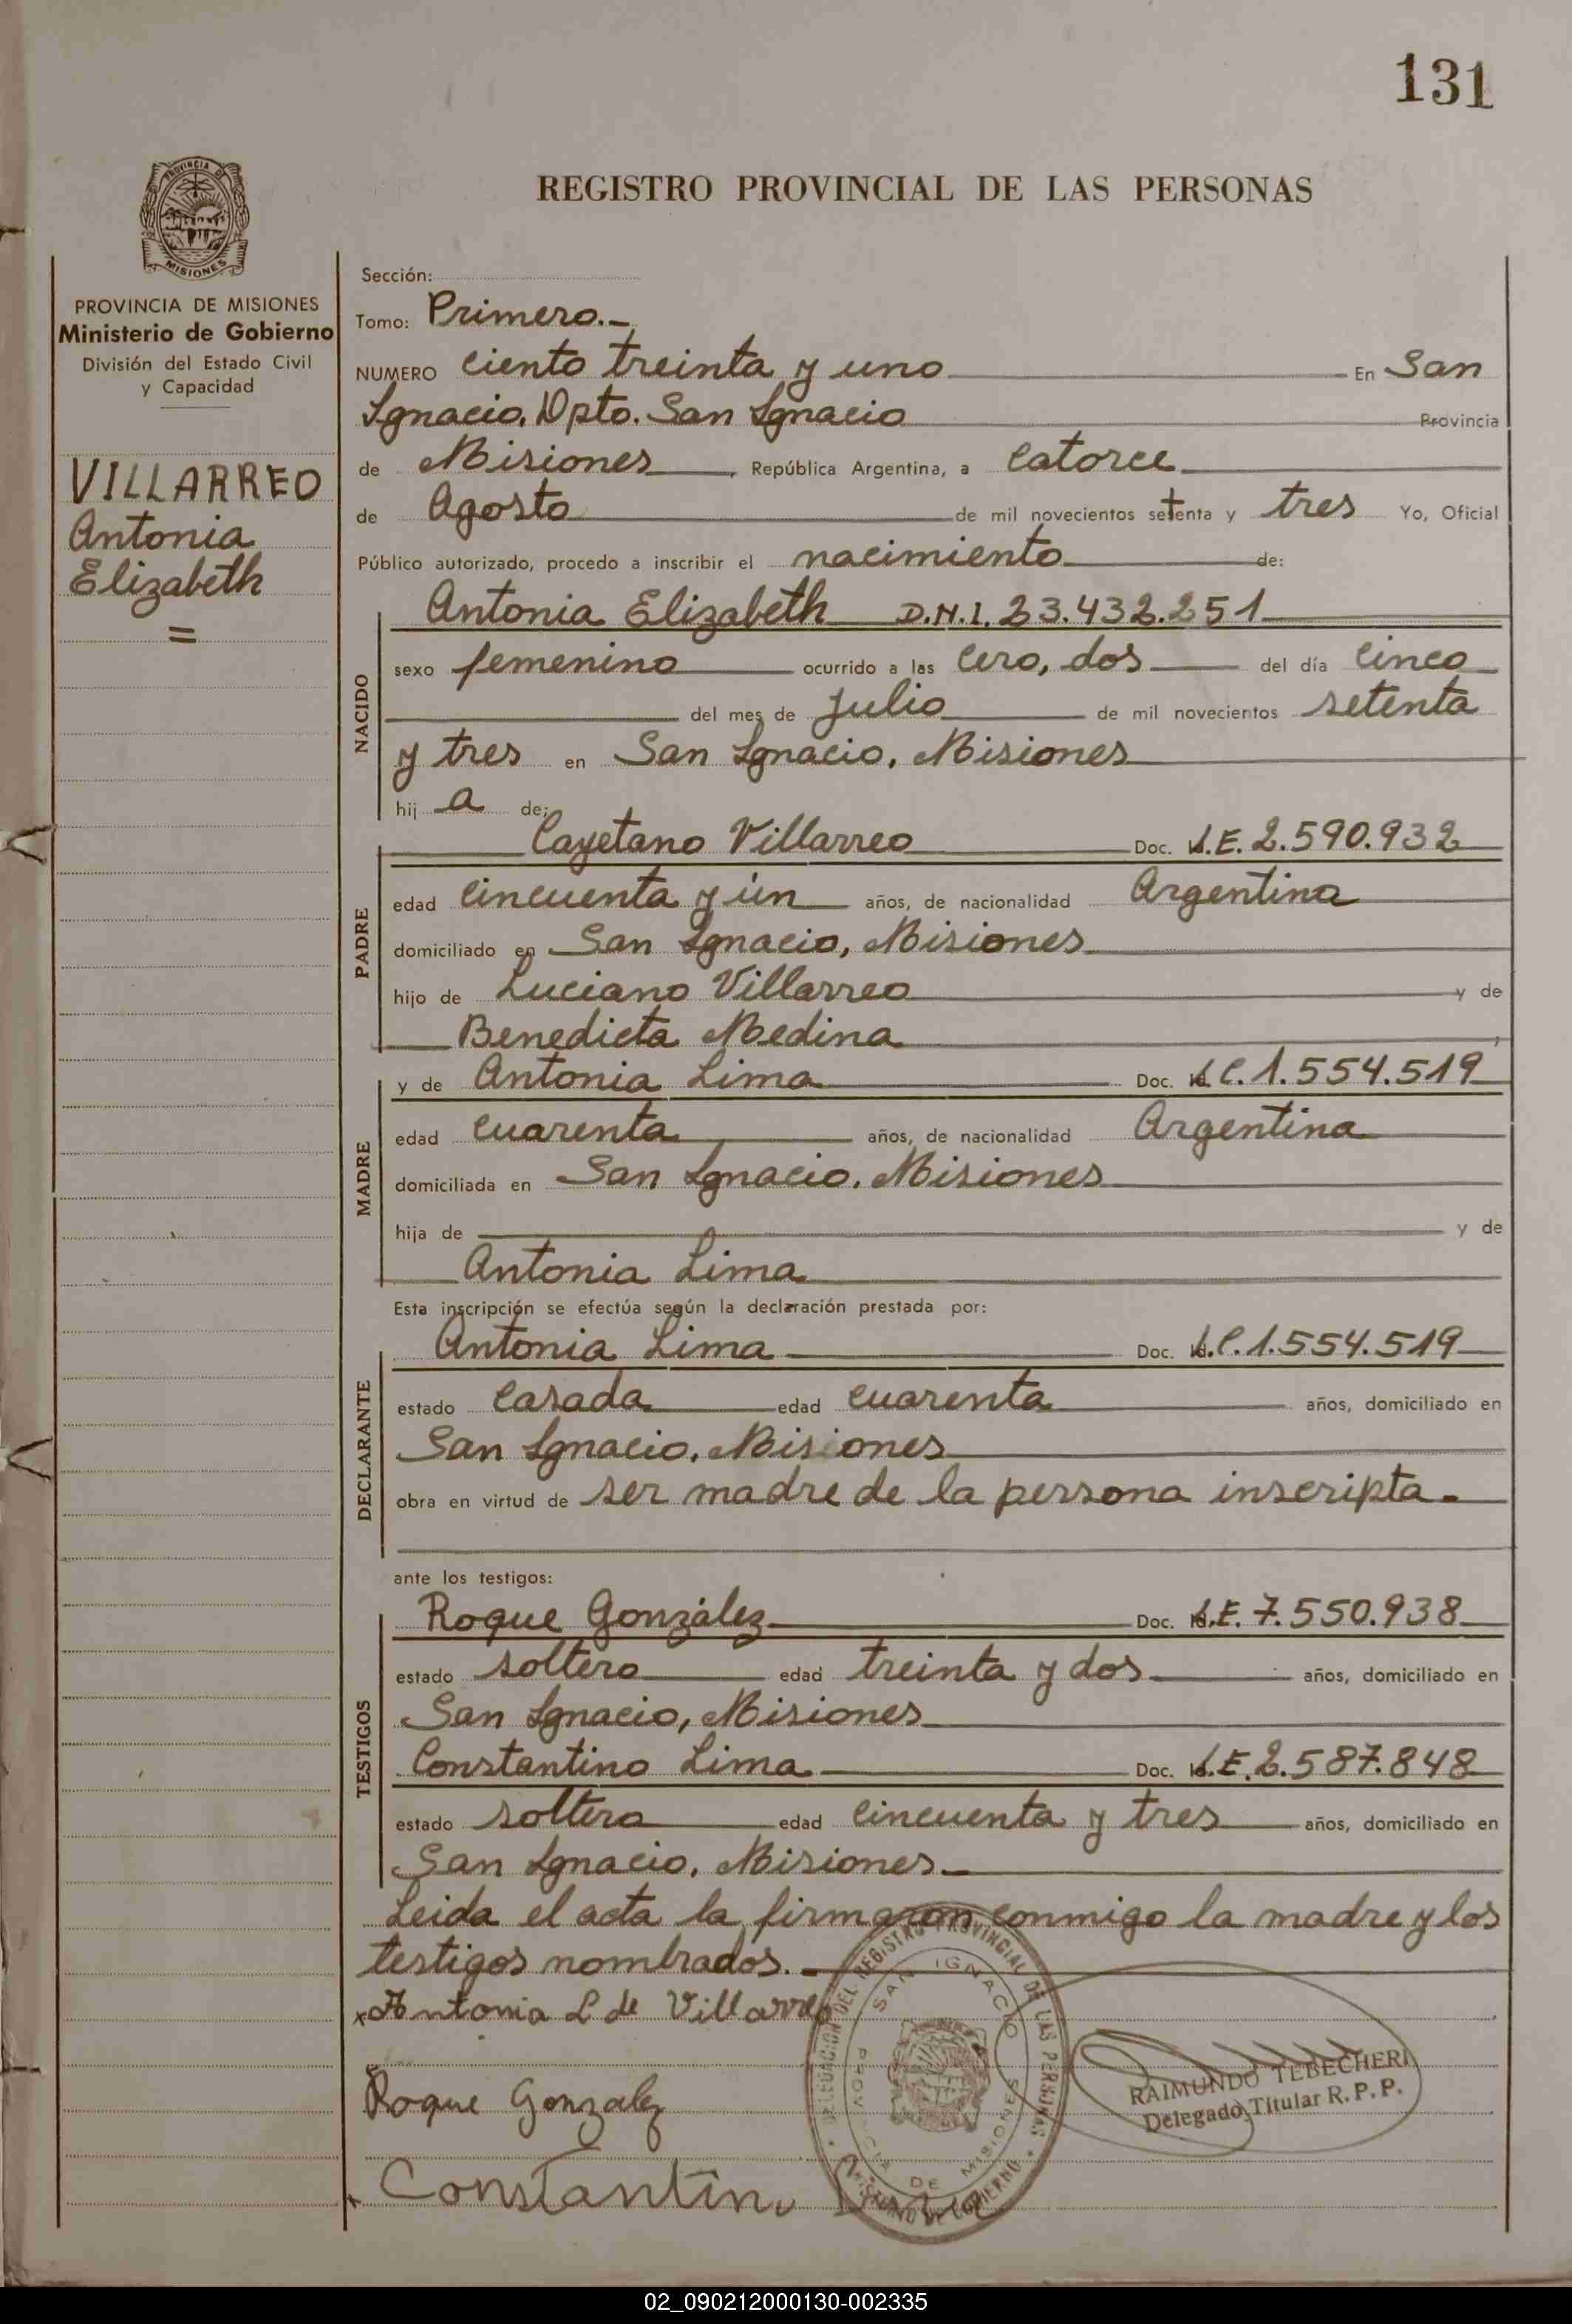 131
REGISTRO PROVINCIAL DE LAS PERSONAS
PROVINCIA DE
MISIONES
PROVINCIA DE MISIONES
Ministerio de Gobierno
División del Estado Civil
y Capacidad
VILLARREO
Antonia
Elizabeth
=
Sección:
Tomo: Primero.-
NUMERO Ciento treinta y uno En San
Ignacio, Dpto. San Ignacio Provincia
de Misiones, República Argentina, a Catorce
de Agosto de mil novecientos setenta y tres Yo, Oficial
Público autorizado, procedo a inscribir el nacimiento de:
NACIDO
Antonia Elizabeth D.N.I. 23.432.251
sexo femenino ocurrido a las Cero, dos del día Cinco
del mes de Julio de mil novecientos setenta
y tres en San Ignacio, Misiones
hij a de:
PADRE
Cayetano Villarreo Doc. L.E. 2.590.932
edad Cincuenta y ún años, de nacionalidad Argentina
domiciliado en San Ignacio, Misiones
hijo de Luciano Villarreo y de
Benedicta Medina
MADRE
y de Antonia Lima Doc. L.C. 1.554.519
edad Cuarenta años, de nacionalidad Argentina
domiciliada en San Ignacio, Misiones
hija de y de
Antonia Lima
Esta inscripción se efectúa según la declaración prestada por:
DECLARANTE
Antonia Lima Doc. L.C. 1.554.519
estado Casada edad Cuarenta años, domiciliado en
San Ignacio, Misiones
obra en virtud de ser madre de la persona inscripta.-
ante los testigos:
TESTIGOS
Roque González Doc. L.E. 7.550.938
estado soltero edad treinta y dos años, domiciliado en
San Ignacio, Misiones
Constantino Lima Doc. L.E. 2.587.848
estado soltero edad Cincuenta y tres años, domiciliado en
San Ignacio, Misiones.-
Leida el acta la firmaron conmigo la madre y los
testigos nombrados.-
x Antonia L de Villarreo
Roque Gonzalez
Constantino Lima
DELEGACION DEL REGISTRO PROVINCIAL DE LAS PERSONAS
MINISTERIO DE GOBIERNO
SAN IGNACIO
PROVINCIA DE MISIONES
RAIMUNDO TEBECHERI
Delegado Titular R. P. P.
02_090212000130-002335